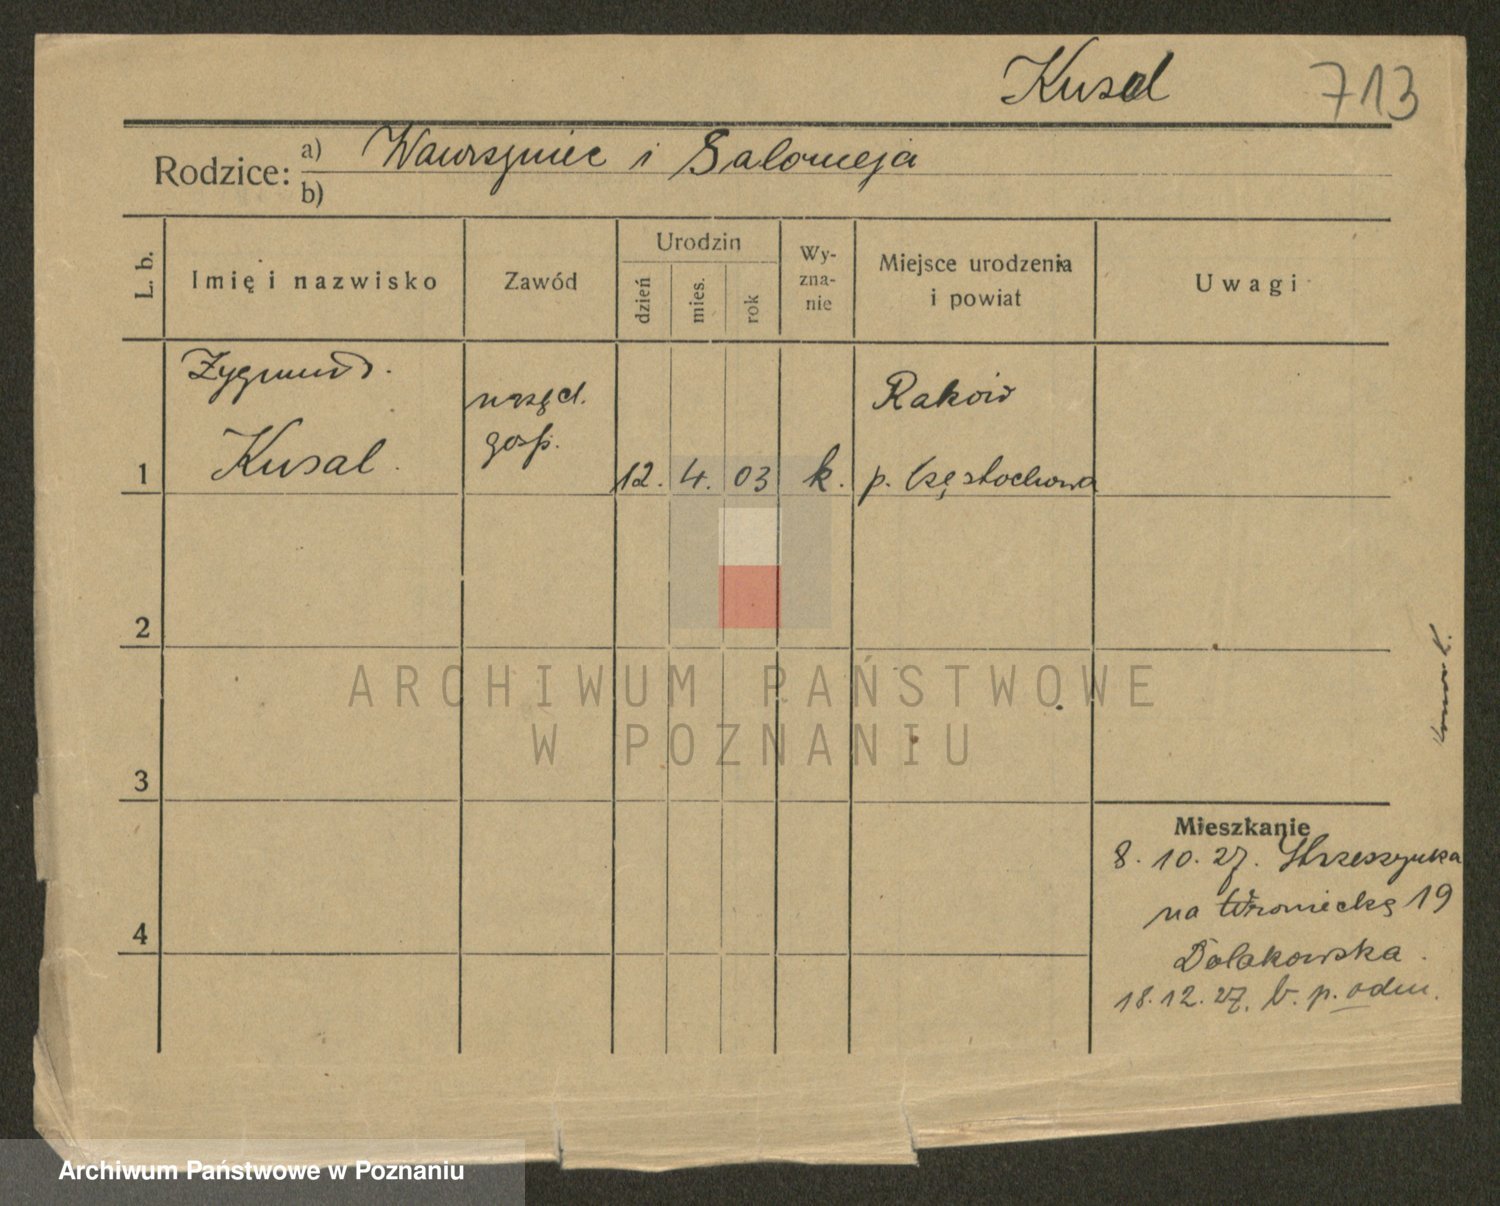 Kusal 713
Rodzice: a) Wawrzyniec i Salomeja
b)
L. b. Imię i nazwisko Zawód Urodzin dzień mies. rok Wy-zna-nie Miejsce urodzenia i powiat Uwagi
Zygmunt
Kusal
urzęd.
gosp.
1 12. 4. 03 k.
Raków
p. Częstochowa
2
3
4
Mieszkanie
8. 10. 27.
na Wroniecką 19
18. 12. 27. b. p. odm.
ARCHIWUM PAŃSTWOWE
W POZNANIU
Archiwum Państwowe w Poznaniu